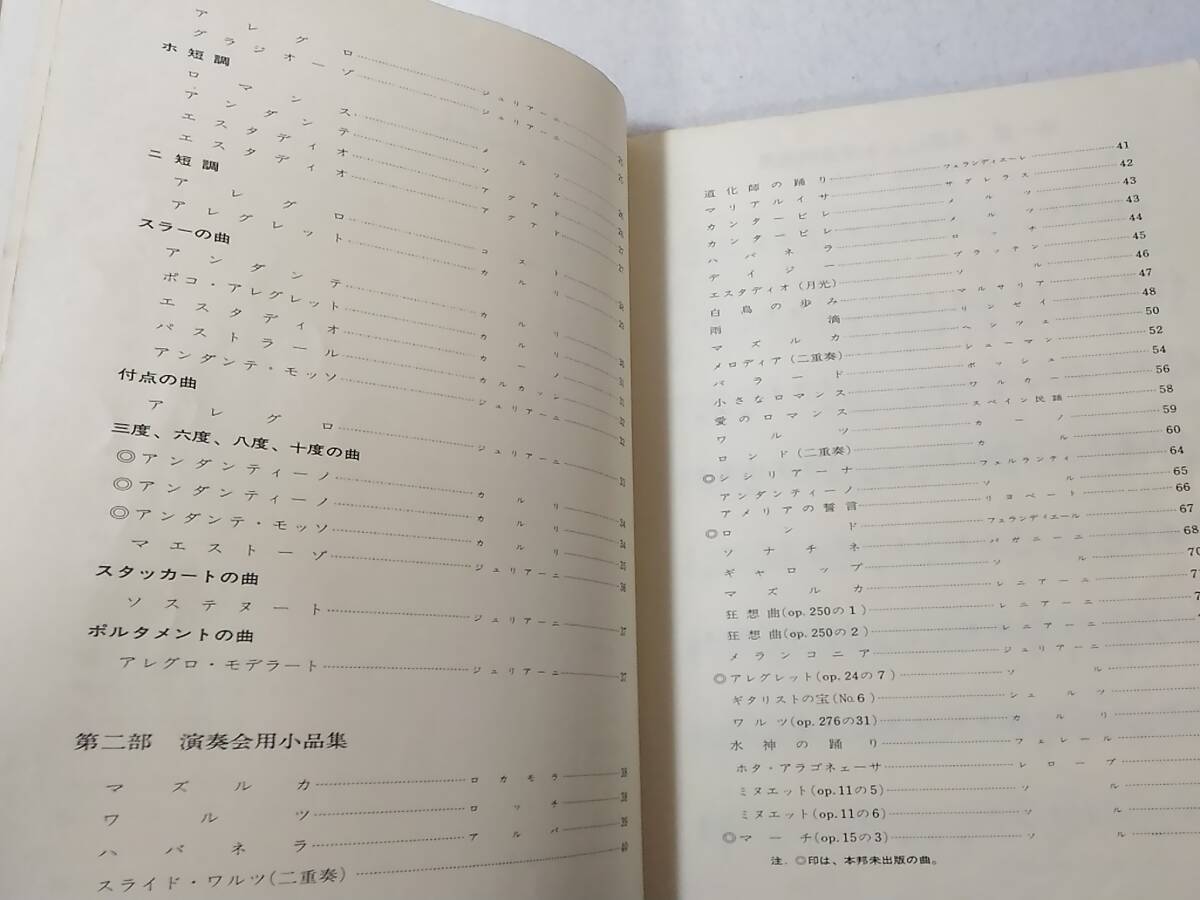 アレグロ……ジュリアーニ
グラジオーゾ……ジュリアーニ
ホ短調
ロマンス……メルツ
アンダンテ……ソル
エスタディオ……アグアド
エスタディオ……アグアド
ニ短調
アレグロ……コスト
アレグレット……カルリ
スラーの曲
アンダンテ……カルリ
ポコ・アレグレット……カルリ
エスタディオ……カーノ
パストラール……カルカッシ
アンダンテ・モッソ……ジュリアーニ
付点の曲
アレグロ……ジュリアーニ
三度、六度、八度、十度の曲
◎アンダンティーノ……カルリ
◎アンダンティーノ……カルリ 34
◎アンダンテ・モッソ……カルリ 34
マエストーゾ……ジュリアーニ 35
スタッカートの曲
ソステヌート……ジュリアーニ 37
ポルタメントの曲
アレグロ・モデラート……ジュリアーニ 37
第二部 演奏会用小品集
マズルカ……ロカモラ 38
ワルツ……ロッチ 38
ハバネラ……アルバ 39
スライド・ワルツ(二重奏)…… 40
道化師の踊り……フェランディエーレ……41
マリアルイサ……サグレラス……42
カンタービレ……メルツ……43
カンタービレ……メルツ……43
ハバネラ……ロッチ……44
デイジー……ブラッテン……45
エスタディオ(月光)……ソル……46
白鳥の歩み……マルサリア……47
雨滴……リンゼイ……48
マズルカ……ヘンツェ……50
メロディア(二重奏)……レューマン……52
バラード……ボッシュ……54
小さなロマンス……ワルカー……56
愛のロマンス……スペイン民謡……58
ワルツ……カーノ……59
ロンド(二重奏)……カル……60
◎シシリアーナ……フェルランティ……64
アンダンティーノ……ソル……65
アメリアの誓言……リヨベート……66
◎ロンド……フェランディエール……67
ソナチネ……パガニーニ……68
ギャロップ……ソル……70
マズルカ……レニアーニ……71
狂想曲(op.250の1)……レニアーニ
狂想曲(op.250の2)……レニアーニ
メランコニア……ジュリアーニ
◎アレグレット(op.24の7)……ソル
ギタリストの宝(No.6)……シュルツ
ワルツ(op.276の31)……カルリ
水神の踊り……フェレール
ホタ・アラゴネェーサ……レローブ
ミヌエット(op.11の5)……ソル
ミヌエット(op.11の6)……ソル
◎マーチ(op.15の3)……ソル
注. ◎印は、本邦未出版の曲。